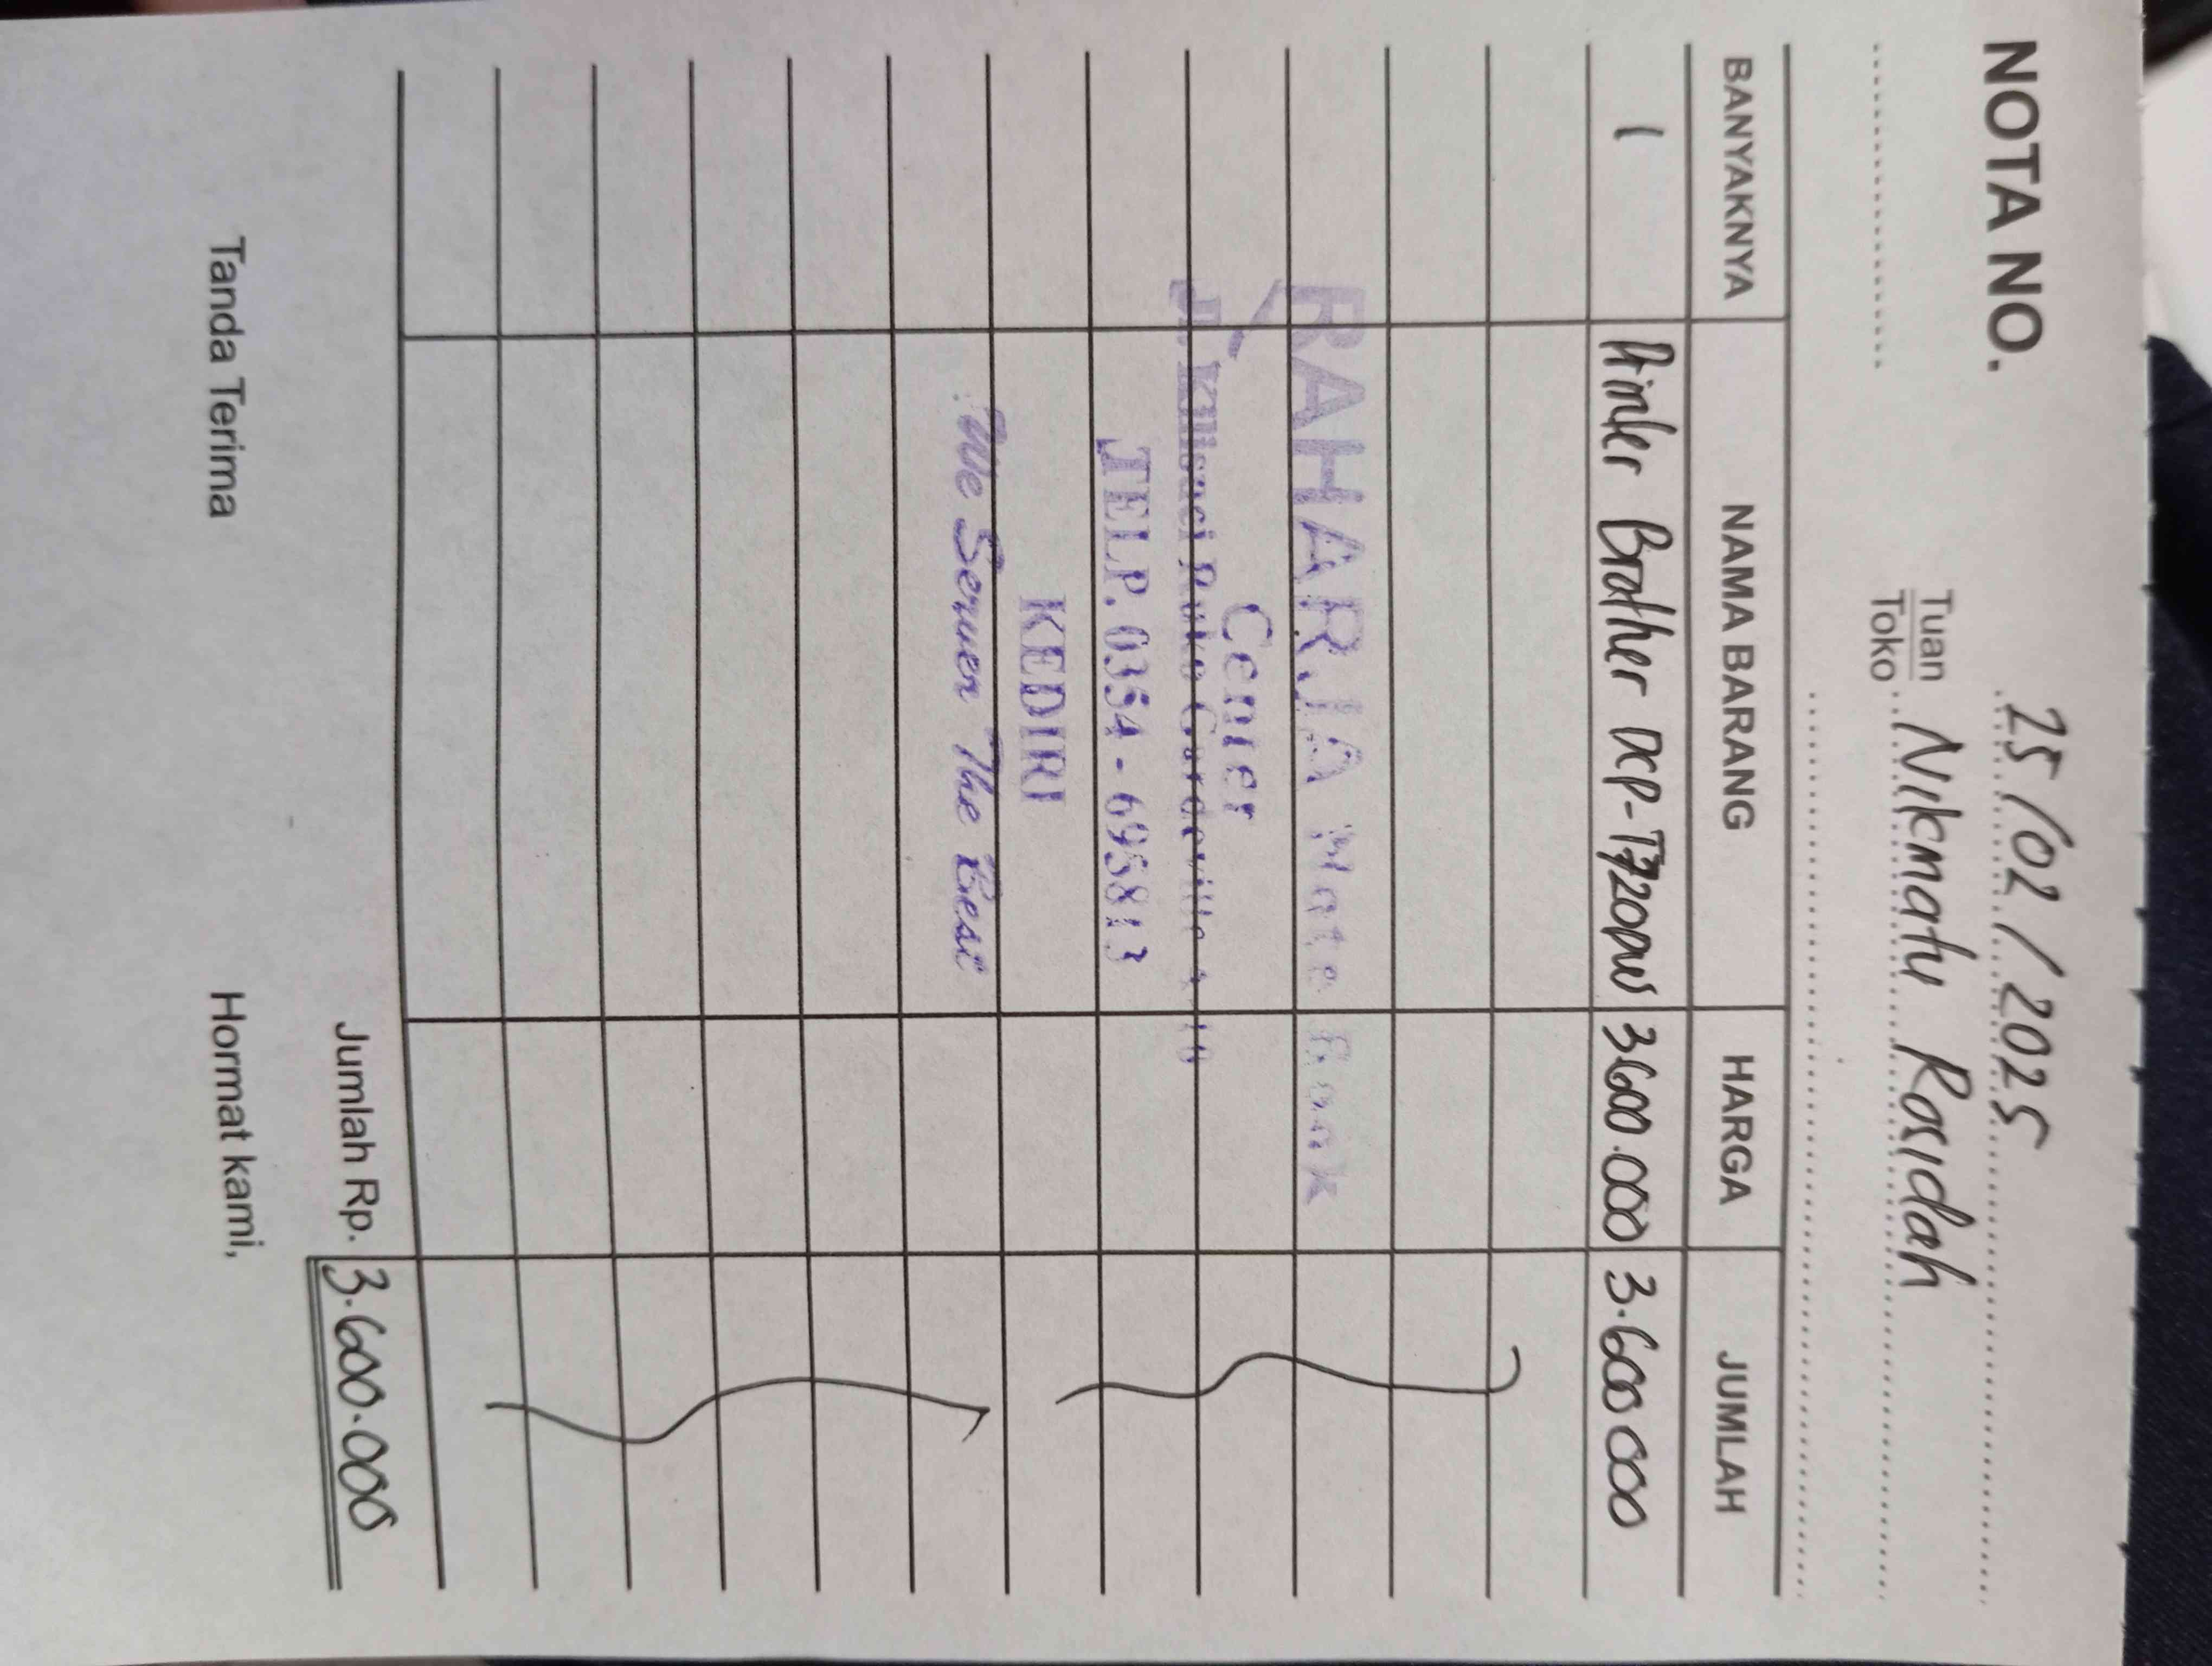 NOTA NO.
25/02/2025
Tuan
Toko
Nikmatu Rosidah
BANYAKNYA NAMA BARANG HARGA JUMLAH
1 Printer Brother DCP-T720DW 3.600.000 3.600.000
RAHARJA
Center
TELP. 0354 - 695813
KEDIRI
We Server The Best
Jumlah Rp. 3.600.000
Tanda Terima Hormat kami,